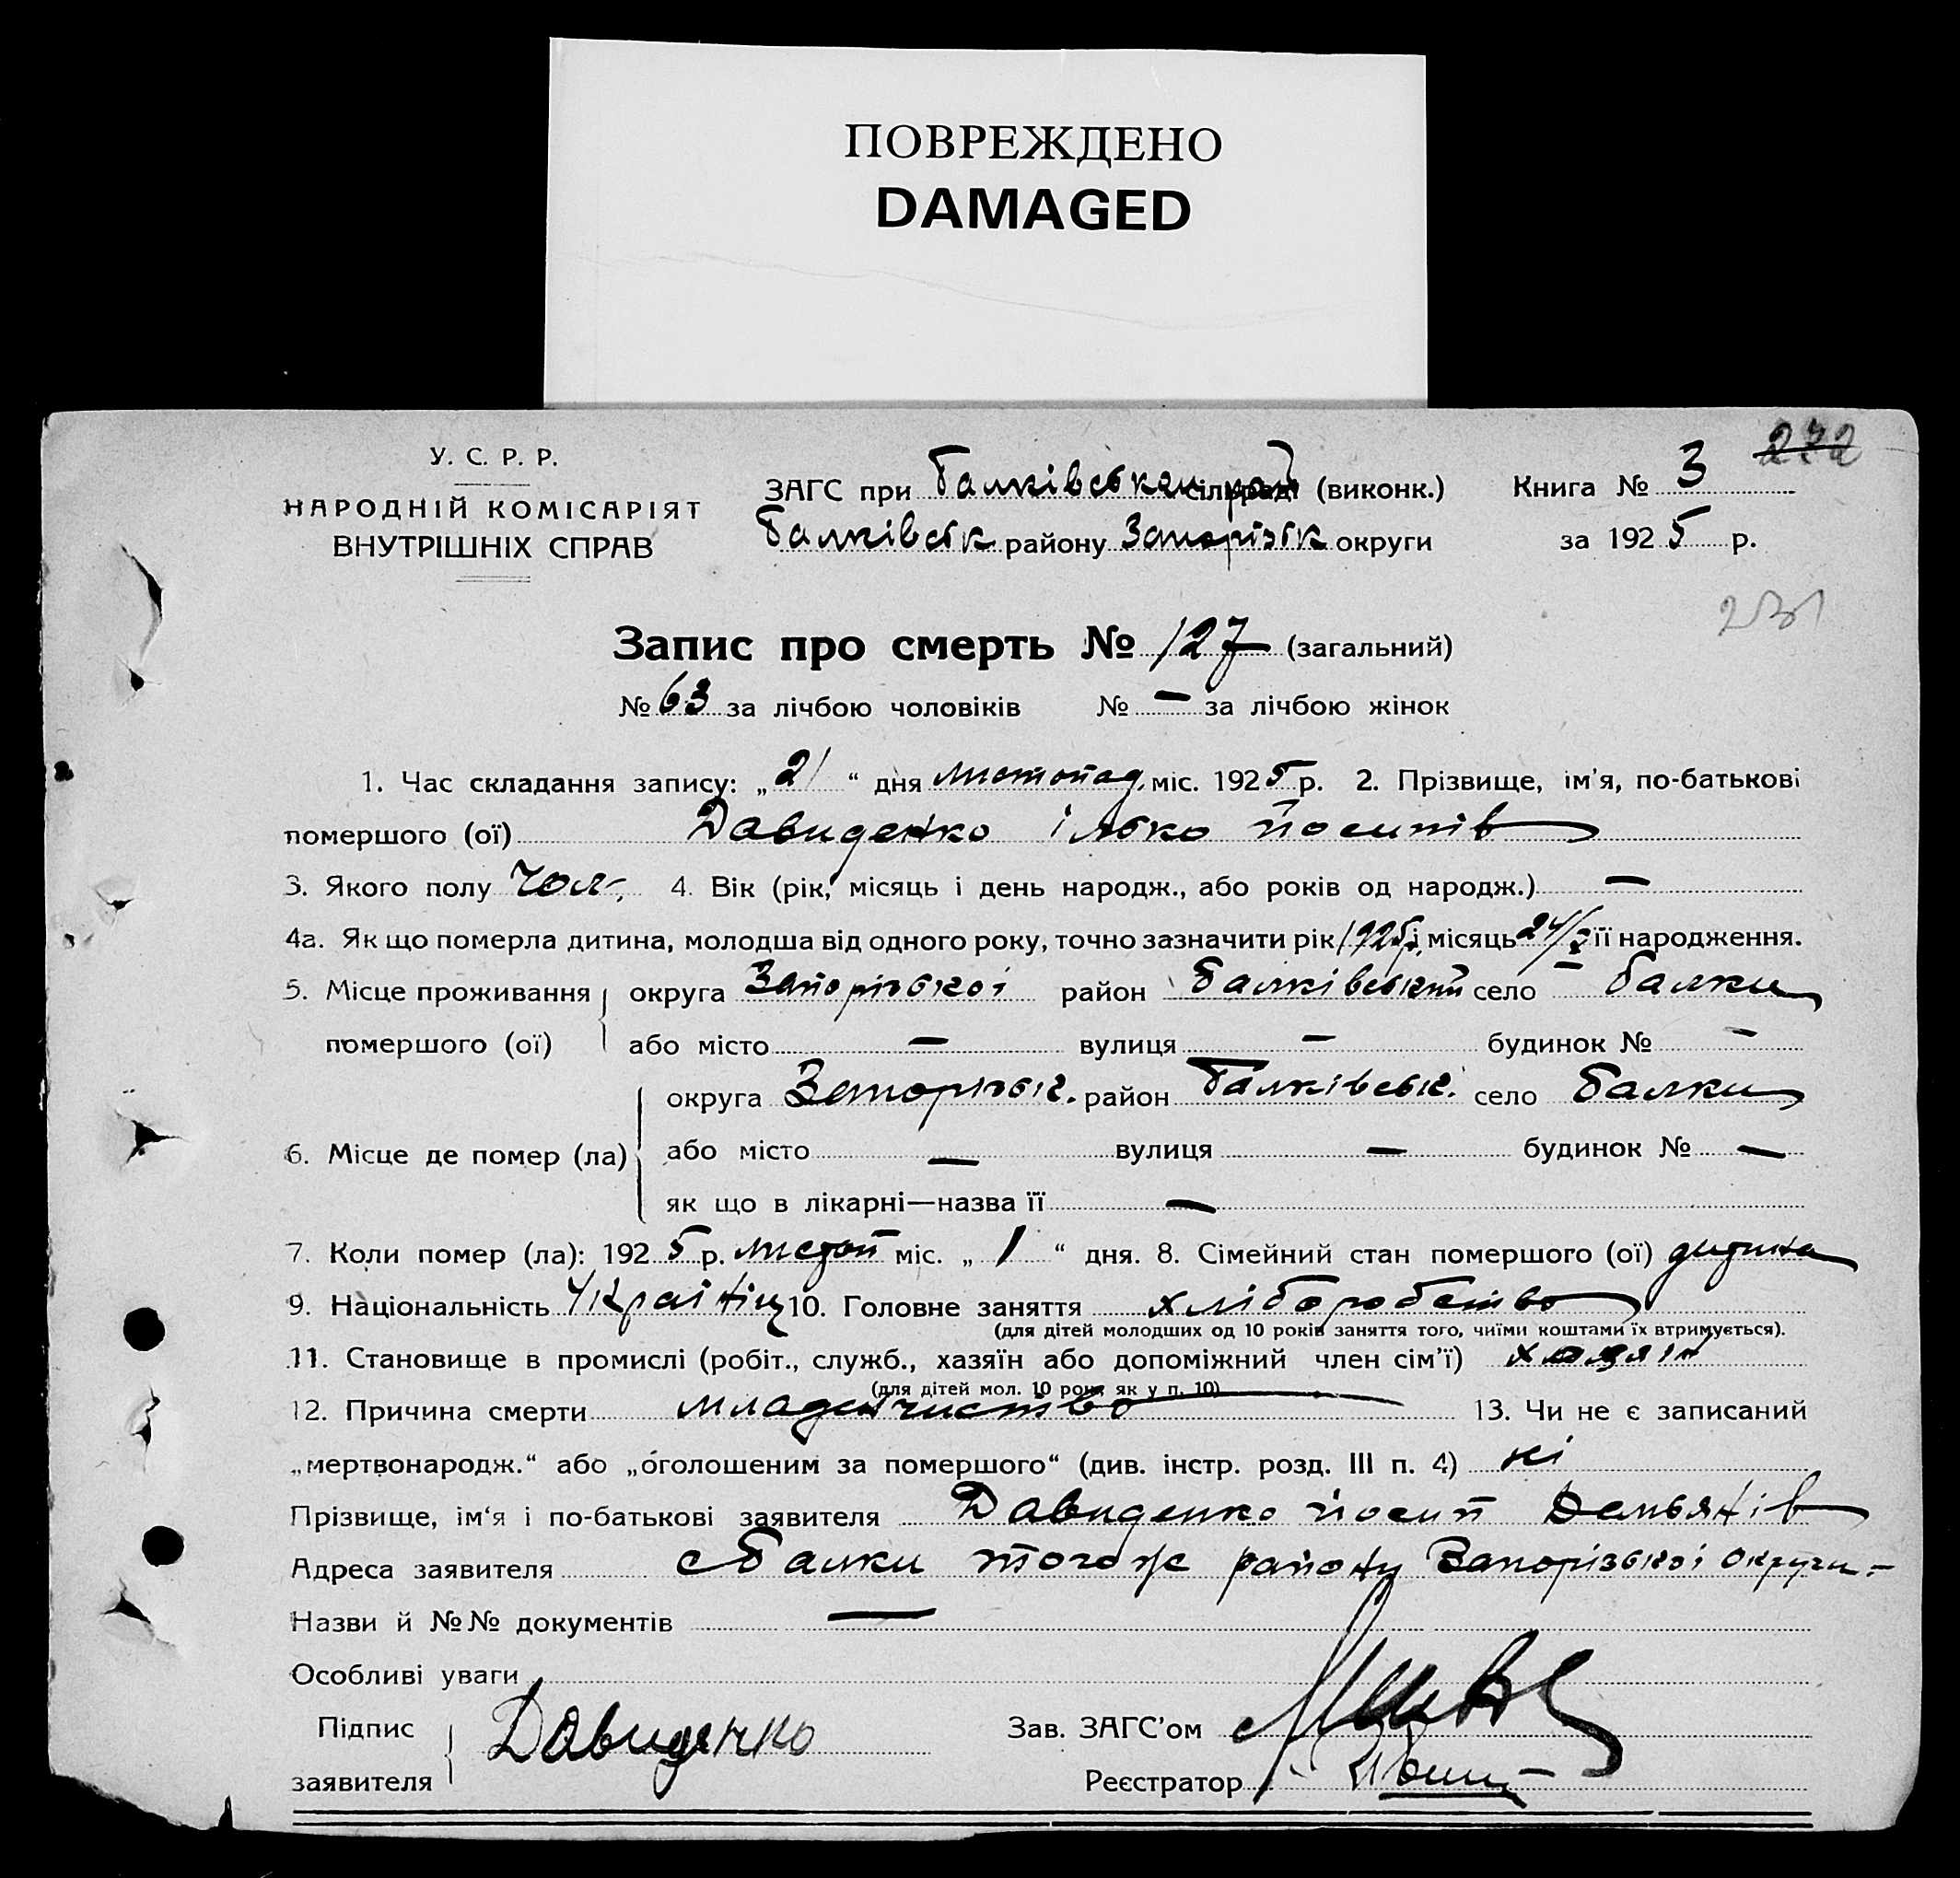 ПОВРЕЖДЕНО
DAMAGED
У. С. Р. Р.
НАРОДНІЙ КОМІСАРІЯТ
ВНУТРІШНІХ СПРАВ
ЗАГС при Балківськом сільраді (виконк.)
Балківськ району Запорізьк округи
Книга № 3 272
за 1925 р.
231
Запис про смерть № 127 (загальний)
№ 63 за лічбою чоловіків № — за лічбою жінок
1. Час складання запису: „21“ дня листопад. міс. 1925 р. 2. Прізвище, ім'я, по-батькові
помершого (ої) Давиденко Ілько Йосипів
3. Якого полу чол. 4. Вік (рік, місяць і день народж., або років од народж.) —
4а. Як що померла дитина, молодша від одного року, точно зазначити рік 1925 і місяць 24/X її народження.
5. Місце проживання округа Запорізької район Балківський село Балки
помершого (ої) або місто — вулиця — будинок № —
округа Запорізьк. район Балківськ. село Балки
6. Місце де помер (ла) або місто — вулиця — будинок № —
як що в лікарні—назва її —
7. Коли помер (ла): 1925 р. листоп міс. „1“ дня. 8. Сімейний стан помершого (ої) дитина
9. Національність Українц 10. Головне заняття хліборобство
(для дітей молодших од 10 років заняття того, чиїми коштами їх втримується).
11. Становище в промислі (робіт., служб., хазяїн або допоміжний член сім'ї) хазяїн
(для дітей мол. 10 рок. як у п. 10)
12. Причина смерти младенчиство 13. Чи не є записаний
„мертвонародж.“ або „оголошеним за помершого“ (див. інстр. розд. III п. 4) ні
Прізвище, ім'я і по-батькові заявителя Давиденко Йосип Демьянів
Адреса заявителя с Балки того ж району Запорізької округи.-
Назви й №№ документів —
Особливі уваги
Підпис
заявителя Давиденко
Зав. ЗАГС'ом
Реєстратор